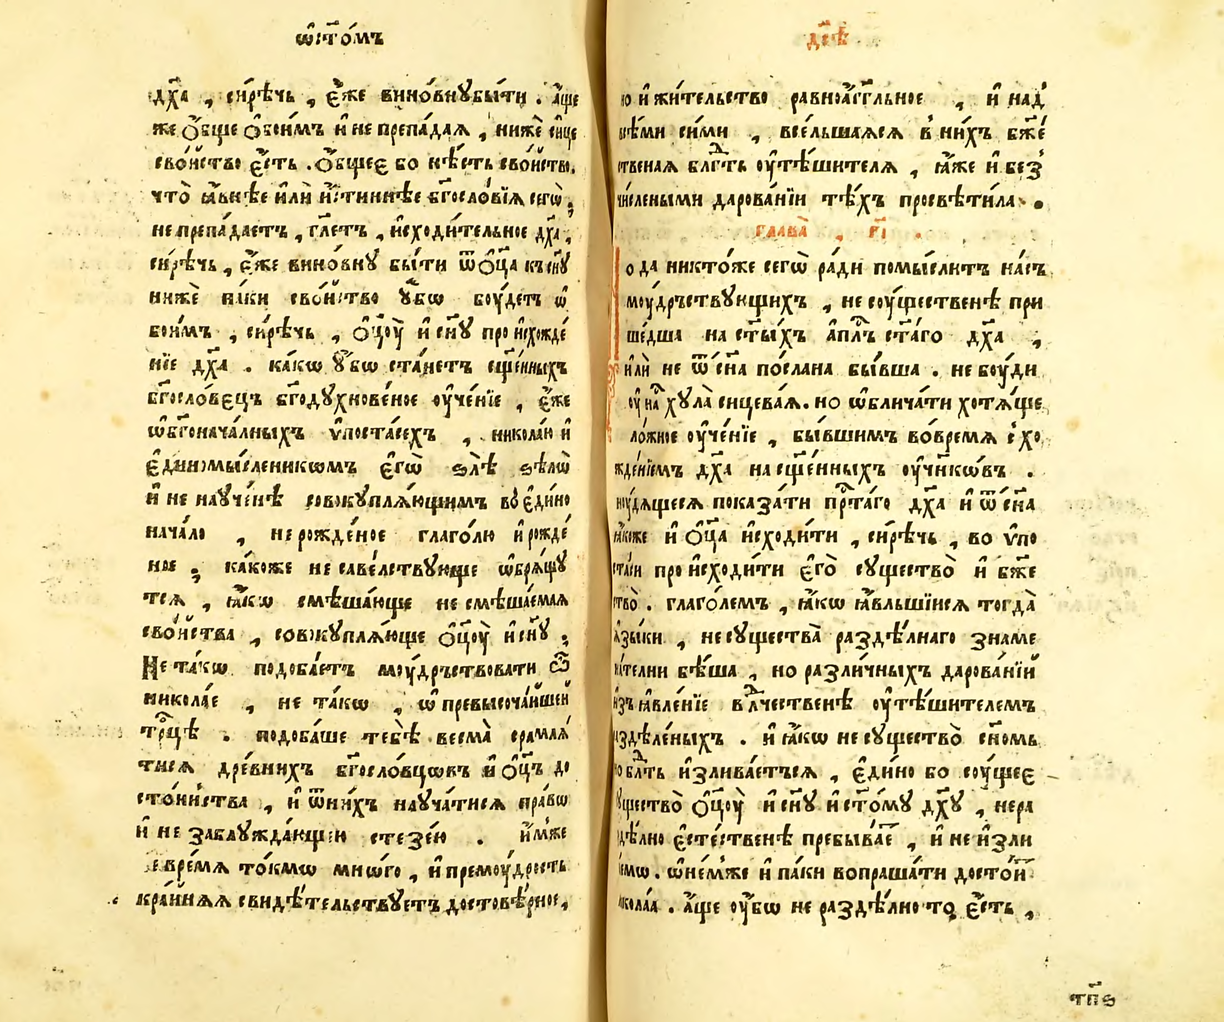 ѡ҆ ст҃о́мъ
дх҃а , си́рѣчь , є҆́же вино́вну бы́ти . а҆́ще
же ѻ҆́бще ѻ҆бои́мъ и҆ не препа́дая , нижѐ сице
сво́йство є҆́сть . ѻ҆́бщеє бо нѣ́сть сво́йство,
что̀ ꙗ҆́внѣе и҆лѝ и҆́стиннѣе бг҃осло́вїя сегѡ̀ ;
не препа́даетъ , гл҃етъ , и҆сходи́тельное дх҃а ,
си́рѣчь , є҆́же вино́вну бы́ти ѿ ѻ҆ц҃а̀ къ сн҃ꙋ
нижѐ па́ки сво́йство ᲂу҆̀бѡ бꙋ́детъ ѡ҆
бои́мъ , си́рѣчь , ѻ҆ц҃ꙋ̀ и҆ сн҃ꙋ происхожде́
нїе дх҃а . ка́кѡ ᲂу҆̀бѡ ста́нетъ сщ҃е́нныхъ
бг҃осло́вецъ бг҃одухнове́ное ᲂу҆че́нїе , є҆́же
ѡ҆ бг҃онача́лныхъ ѵ҆поста́сехъ , нико́лаю и҆
є҆диномы́сленикѡмъ є҆гѡ̀ ѕлѣ̀ ѕѣлѡ̀
и҆ не нау́ченѣ совокупля́ющимъ во є҆ди́но
нача́ло , нерожде́ное глаго́лю и҆ рожде́
ное ; ка́коже не саве́лствующе ѡ҆бря́щꙋ
тся , ꙗ҆́кѡ смѣша́юще не смѣша́емая
сво́йства , совокупля́юще ѻ҆ц҃ꙋ̀ и҆ сн҃ꙋ ;
Не та́кѡ подоба́етъ мꙋ́дрьствовати ѽ
нико́лае , не та́кѡ , ѡ҆ превысоча́йшей
трⷪ҇цѣ . подоба́ше тебѣ̀ весма̀ срамля́
тися дре́внихъ бг҃осло́вцѡвъ и҆ ѻ҆ц҃ъ до
сто́инства , и҆ ѿ ни́хъ науча́тися пра́вѡ
и҆ не заблужда́ющею стезе́ю . и҆́мже
вре́мя то́кмѡ мно́го , и҆ прему́дрость
кра́йняя свидѣ́тельствуетъ достовѣ́рное,
дс҃ѣ
но и҆ жи́тельство равноа́гг҃льное , и҆ над̾
всѣ́ми си́ми , все́льшаяся в̾ ни́хъ бж҃е́
ственая блг҃ть ᲂу҆тѣ́шителя , ꙗ҆́же и҆ без̾
чи́слеными дарова́нїи тѣ́хъ просвѣти́ла .
глава̀ , г҃і .
о да никто́же сегѡ̀ ра́ди помы́слитъ на́съ
мꙋ́дрьствующихъ , не сꙋ́щественѣ при
ше́дша на ст҃ы́хъ а҆пⷭ҇лъ ст҃а́го дх҃а ,
и҆лѝ не ѿ сн҃а по́слана бы́вша . не бꙋ́ди
ᲂу҆ на́съ хула̀ сицева́я . но ѡ҆блича́ти хотя́ще
ло́жное ᲂу҆че́нїе , бы́вшимъ во вре́мя схо
жде́нїемъ дх҃а на сщ҃е́нныхъ ᲂу҆чн҃кѡ́въ .
нꙋ́дящеся показа́ти прⷭ҇та́го дх҃а и҆ ѿ сн҃а
ꙗ҆́коже и҆ ѻ҆ц҃а̀ и҆сходи́ти , си́рѣчь , во ѵ҆по
ста́си происходи́ти є҆го̀ существо̀ и҆ бж҃е
ство̀ . глаго́лемъ , ꙗ҆́кѡ ꙗ҆́вльшїися тогда̀
ꙗ҆зы́ки , не существа̀ раздѣ́лнаго знаме
ни́телни бѣ́ша , но разли́чныхъ дарова́нїй
и҆зъ ꙗ҆вле́нїе влⷣчественѣ ᲂу҆тѣ́шителемъ
раздѣ́леныхъ . и҆ ꙗ҆́кѡ не существо̀ сн҃омъ
но блг҃ть и҆злива́ется , є҆ди́но бо сꙋ́щее
существо̀ ѻ҆ц҃ꙋ̀ и҆ сн҃ꙋ и҆ ст҃о́му дх҃у , нера
здѣ́лно є҆сте́ственѣ пребыва́е , и҆ не и҆зли
є́мѡ . ѡ҆ не́мже и҆ па́ки вопраша́ти досто́и
нико́лаа . а҆́ще ᲂу҆́бѡ не раздѣ́лно то̀ є҆́сть ,
тп҃ѕ